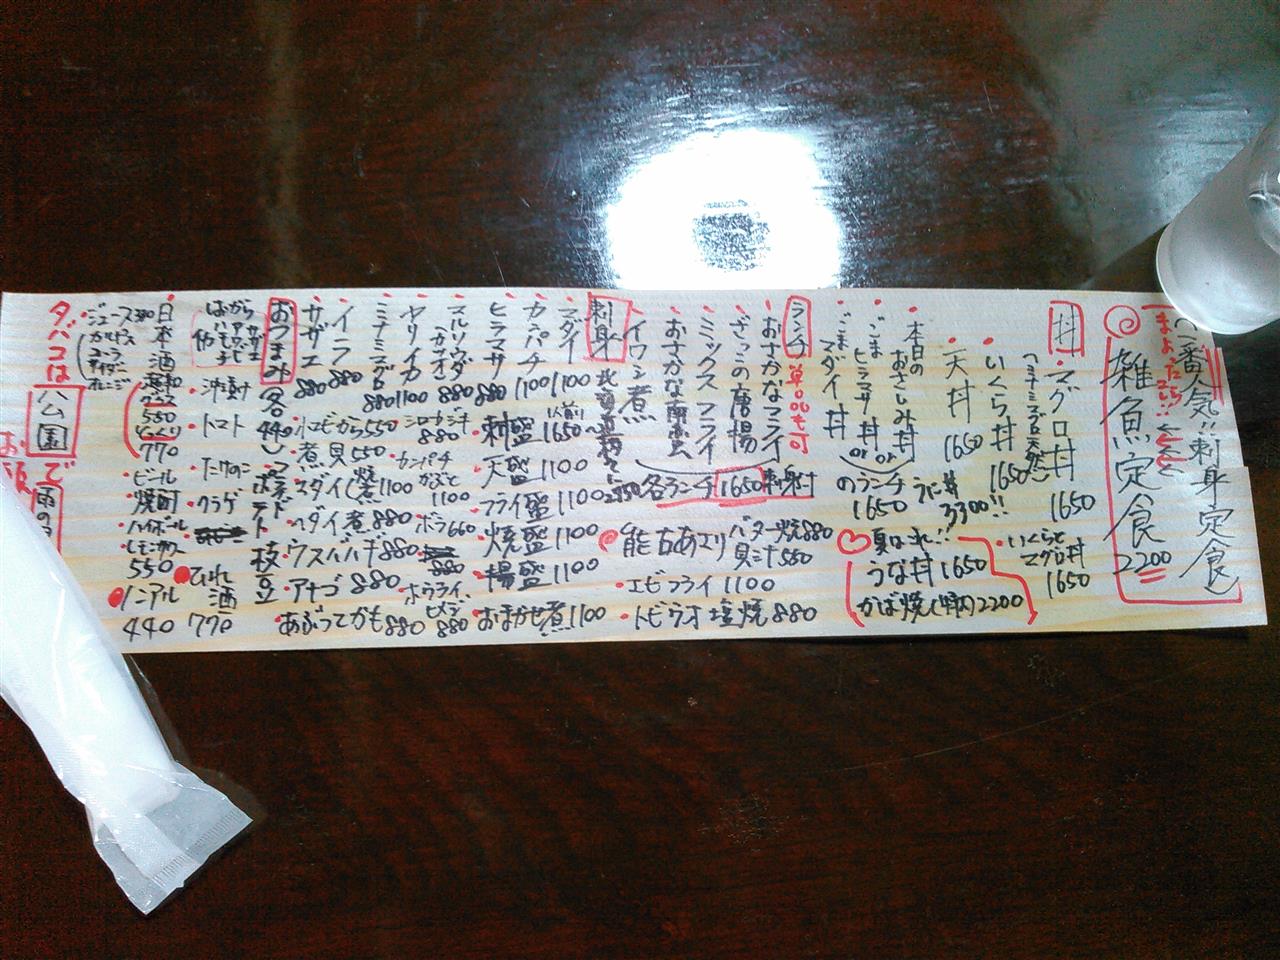 一番人気!! 刺身定食
まよったら
コレ!!
雑魚定食
2200
丼
・マグロ丼 1650
・いくらと
マグロ丼
1650
・いくら丼 1650
・天丼 1650
・本日の
おさしみ丼
ごま
ヒラマサ丼 or
ごま
マダイ丼
のランチ
1650
3300!!
うな丼 1650
かば焼 2200
ランチ 単品も可
・おさかなフライ
・ざっこの唐揚
・ミックスフライ
・おさかな南蛮
・イワシ煮
各ランチ 1650 刺身付
・能古あさり バター焼 880
貝汁 550
・エビフライ 1100
・トビウオ塩焼 880
刺身
・マダイ 1100
・カンパチ 1100
・ヒラマサ 880
・マルソウダ
カツオ 880
・ヤリイカ 1100
・ミナミマグロ 880
・イワシ 880
・サザエ 880
・刺盛 1人前 1650~
・天盛 1100
・フライ盛 1100
・焼盛 1100
・揚盛 1100
・おまかせ煮 1100
・小エビから 550
・煮貝 550
・マダイ煮 1100
・ヘダイ煮 880
・ボラ 660
・ウスバハギ 880
・アナゴ 880
・あぶってかも 880
おつまみ 各440
・ポテト
・枝豆
・沖漬け
・トマト
・たけのこ
・クラゲ
・ひれ酒
770
・日本酒
550
770
・ビール
・焼酎
・ハイボール
・レモンサワー
550
・ノンアル
440
・ジュース
カルピス
コーラ
サイダー
オレンジ
タバコは
公園
で